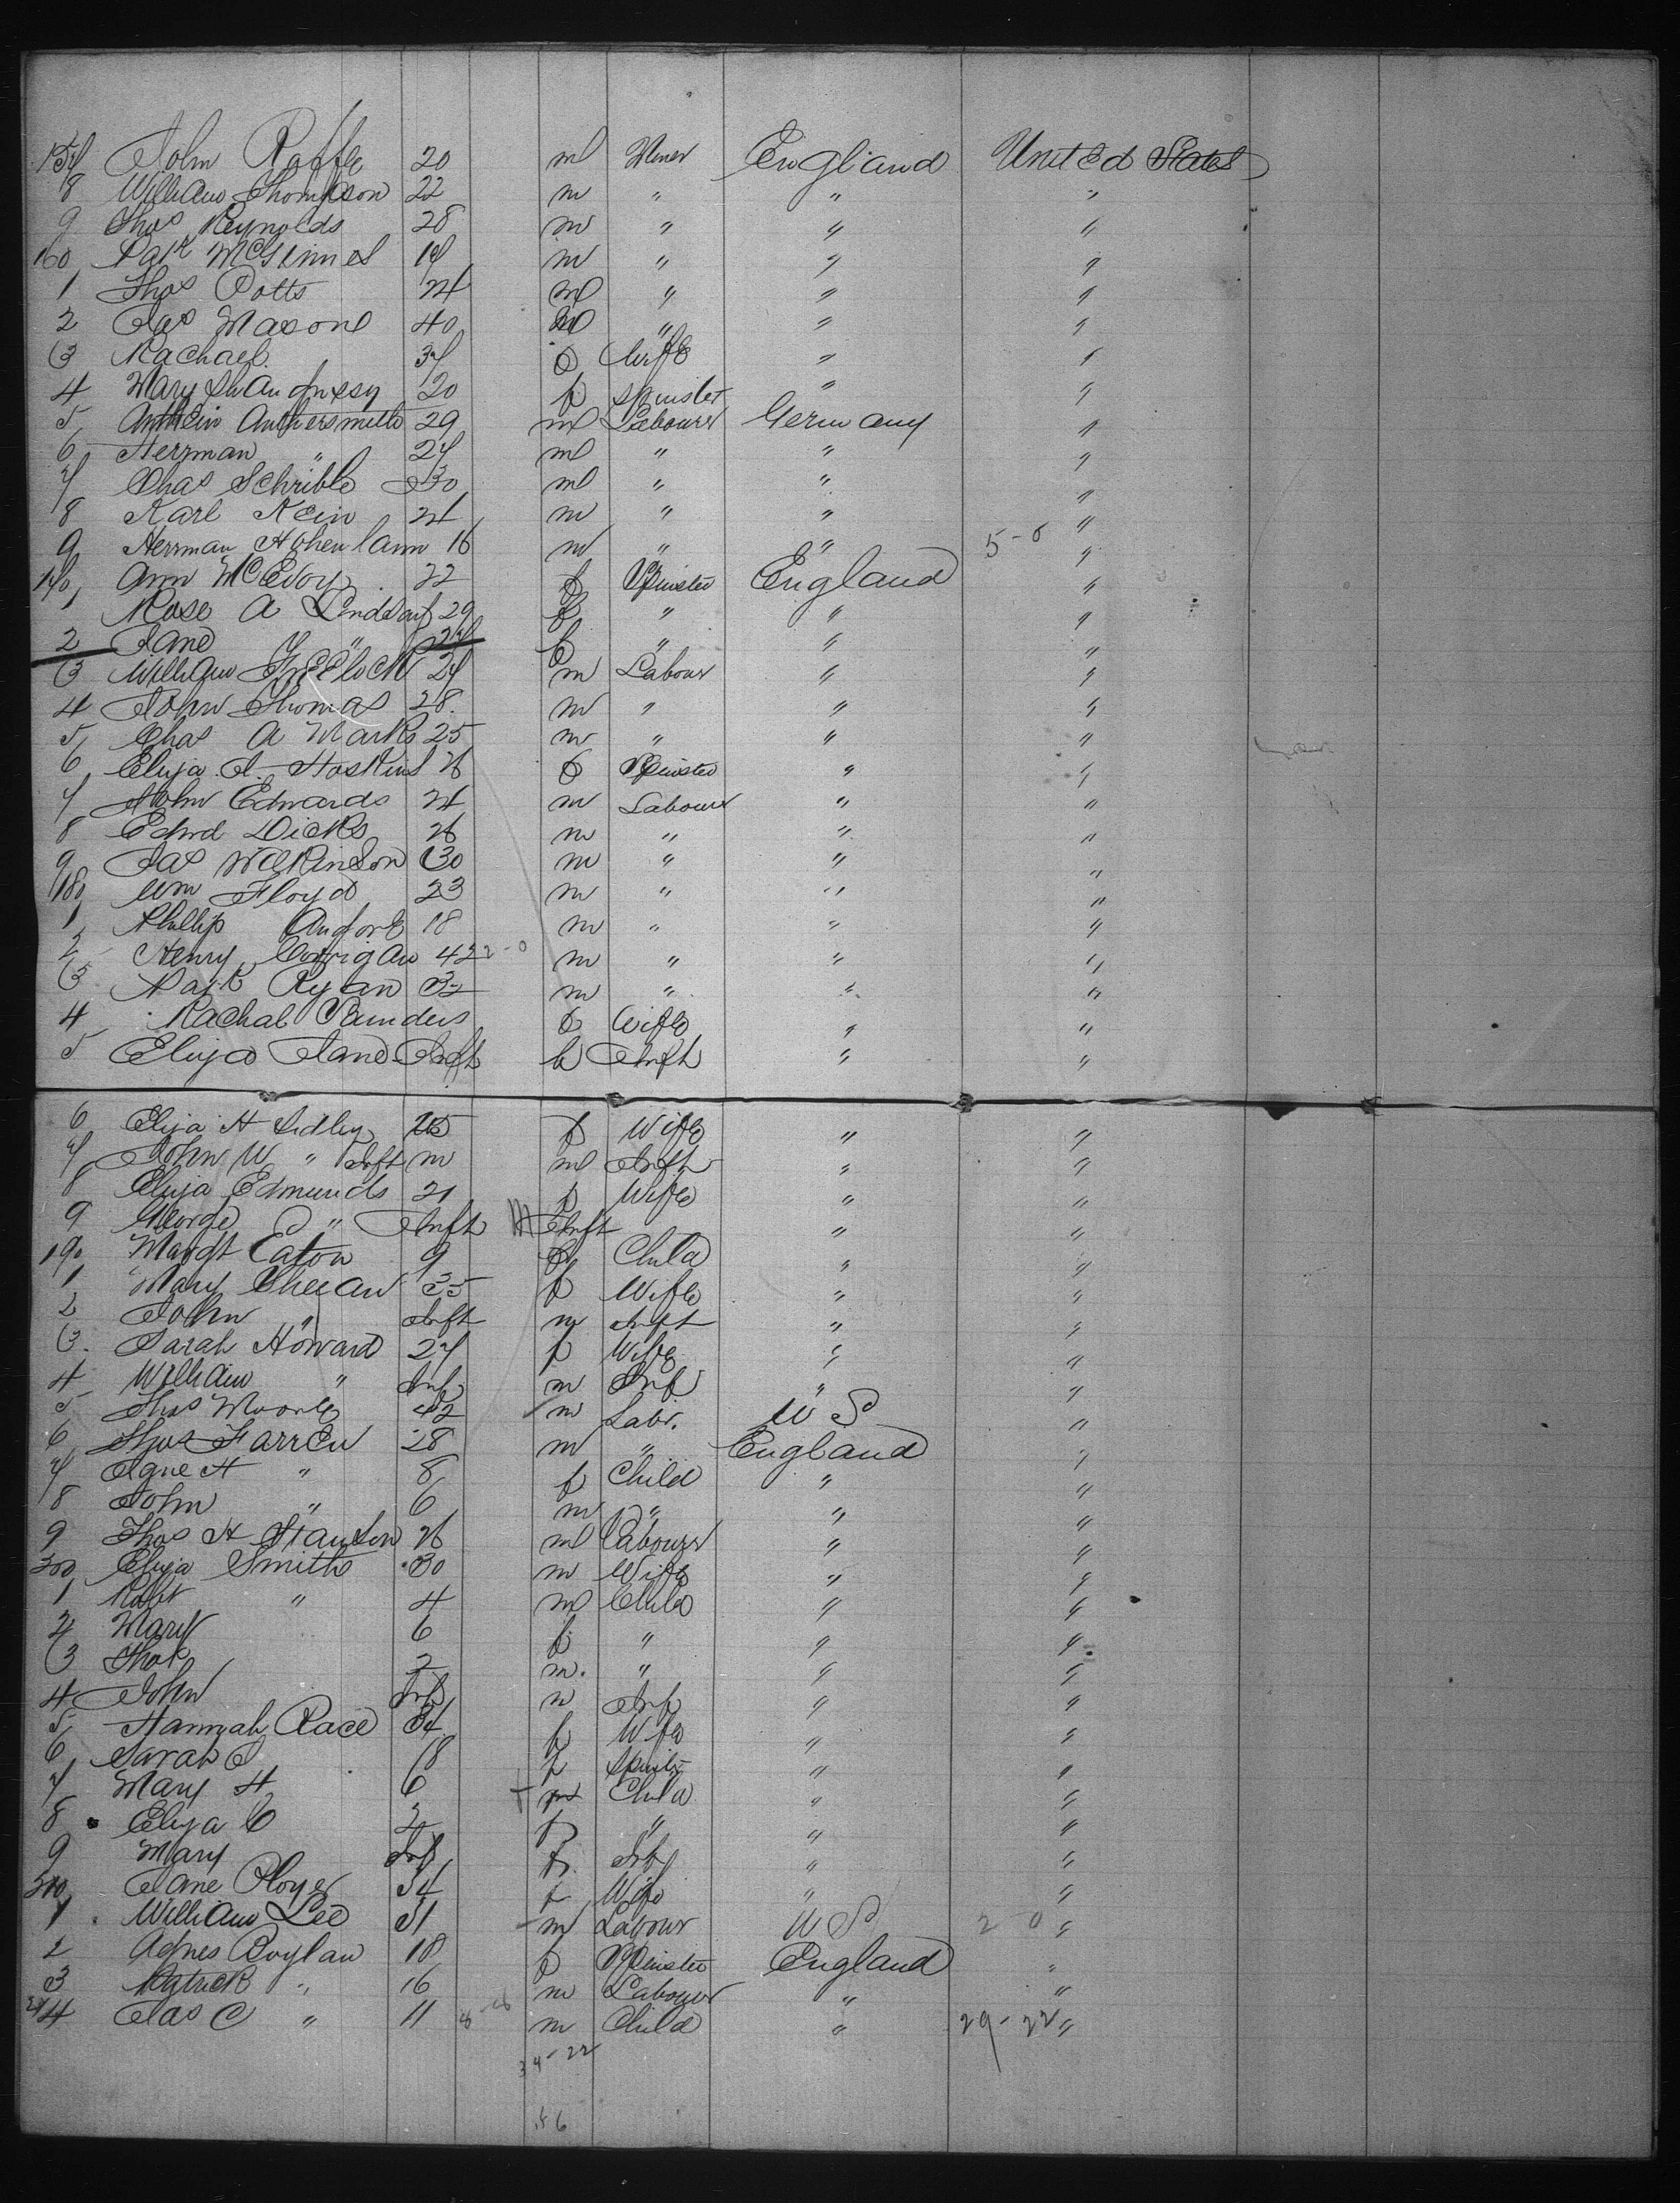 157 John Roffe 20 m Miner England United States
8 William Thompson 22 m " " "
9 Thos Reynolds 28 m " " "
160 Patk McGinnes 19 m " " "
1 Thos Potts 24 m " " "
2 Jas Masone 40 m " " "
3 Rachael 37 f Wife " "
4 Mary 20 f Spinster " "
5 29 m Labourer Germany "
6 Herrman " 27 m " " "
7 Chas Schrible 30 m " " "
8 Karl Kein 24 m " " "
9 Herrman Hohenlann 16 m " " 5-0 "
170 Ann McEvoy 22 f Spinster England "
1 Rose A 29 f " " "
2 Jane " 27 f " " "
3 William 27 m Labour " "
4 John Thomas 28 m " " "
5 Chas A Marks 25 m " " "
6 Eliza J. Hoskins 26 f Spinster " "
7 John Edwards 24 m Labourer " "
8 Edwd Dicks 26 m " " "
9 Jas Wilkinson 30 m " " "
180 Wm Floyd 23 m " " "
1 Phillip 18 m " " "
2 Henry Corrigan 42 2-0 m " " "
3 Patk Ryan 32 m " " "
4 Rachal Saunders f Wife " "
5 Eliza Jane Inft f Inft " "
6 Eliza H Sidley 25 f Wife " "
7 John W " Inft m m Inft " "
8 Eliza Edmunds 21 f Wife " "
9 George " Inft M Inft " "
190 Margt Eaton 9 f Child " "
1 Mary 35 f Wife " "
2 John " Inft m Inft " "
3 Sarah Howard 27 f Wife " "
4 William " Inf m Inf " "
5 Thos Moore 42 m Labr. U S "
6 Thos Farren 28 m " England "
7 H " 8 f Child " "
8 John " 6 m " " "
9 Thos H Stanton 26 m Labourer " "
300 Eliza Smith 30 m Wife " "
1 Robt " 4 m Child " "
2 Mary 6 f " " "
3 Thos 2 m. " " "
4 John Inf m Inf " "
5 Hannah Race 34 f Wife " "
6 Sarah J 18 f Spinstr " "
7 Mary H 6 f Child " "
8 Eliza C 2 f " " "
9 Mary Inf f. Inf " "
310 Jane Ployer 34 f Wife " "
1 William Lee 31 m Labour U S 2-0 "
2 Agnes Boylan 18 f Spinster England "
3 Patrick " 16 m Labourer " "
4 Jas C " 11 m Child " 29-22 "
34-22
56